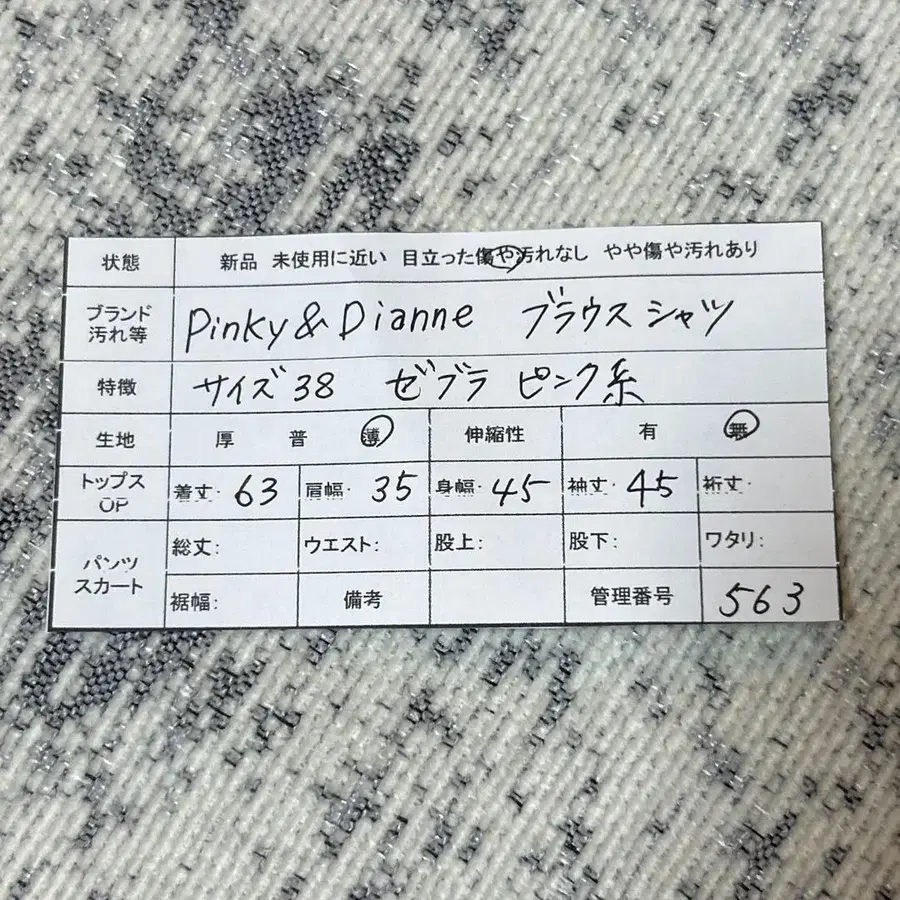 状態 新品 未使用に近い 目立った傷や汚れなし やや傷や汚れあり
ブランド 汚れ等 Pinky & Dianne ブラウスシャツ
特徴 サイズ38 ゼブラ ピンク系
生地 厚 普 薄 伸縮性 有 無
トップス OP 着丈: 63 肩幅: 35 身幅: 45 袖丈: 45 裄丈:
パンツ スカート 総丈: ウエスト: 股上: 股下: ワタリ:
裾幅: 備考 管理番号 563